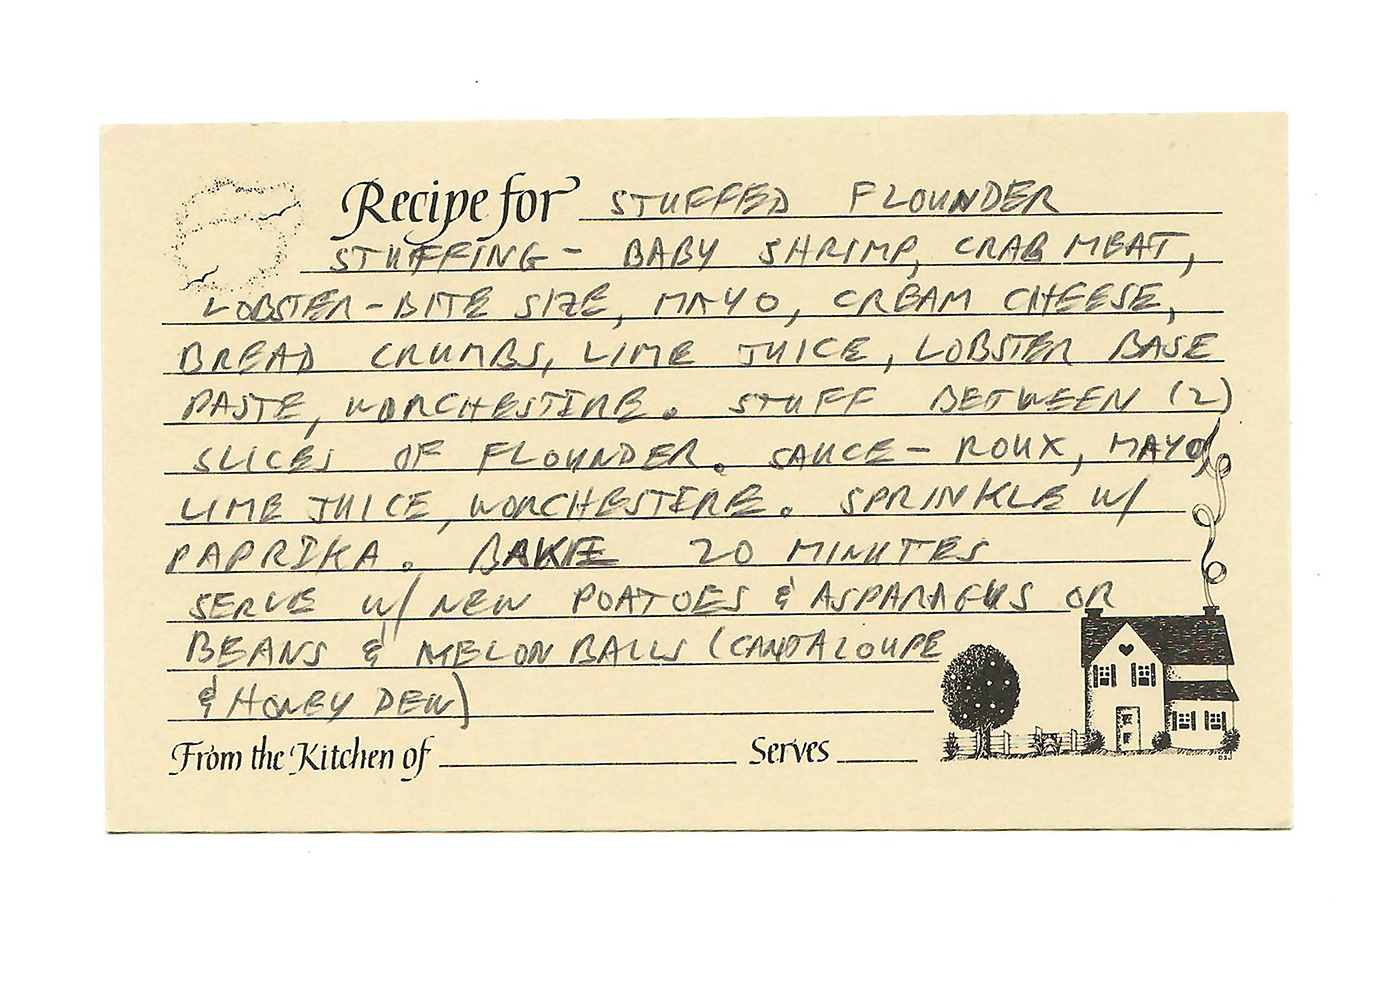 Recipe for STUFFED FLOUNDER
STUFFING - BABY SHRIMP, CRAB MEAT,
LOBSTER - BITE SIZE, MAYO, CREAM CHEESE,
BREAD CRUMBS, LIME JUICE, LOBSTER BASE
PASTE, WORCHESTIRE. STUFF BETWEEN (2)
SLICES OF FLOUNDER. SAUCE - ROUX, MAYO,
LIME JUICE, WORCHESTERE. SPRINKLE W/
PAPRIKA. BAKE 20 MINUTES
SERVE W/ NEW POATOES & ASPARAGUS OR
BEANS & MELON BALLS (CANTALOUPE
& HONEY DEW)
From the Kitchen of Serves
DSJ